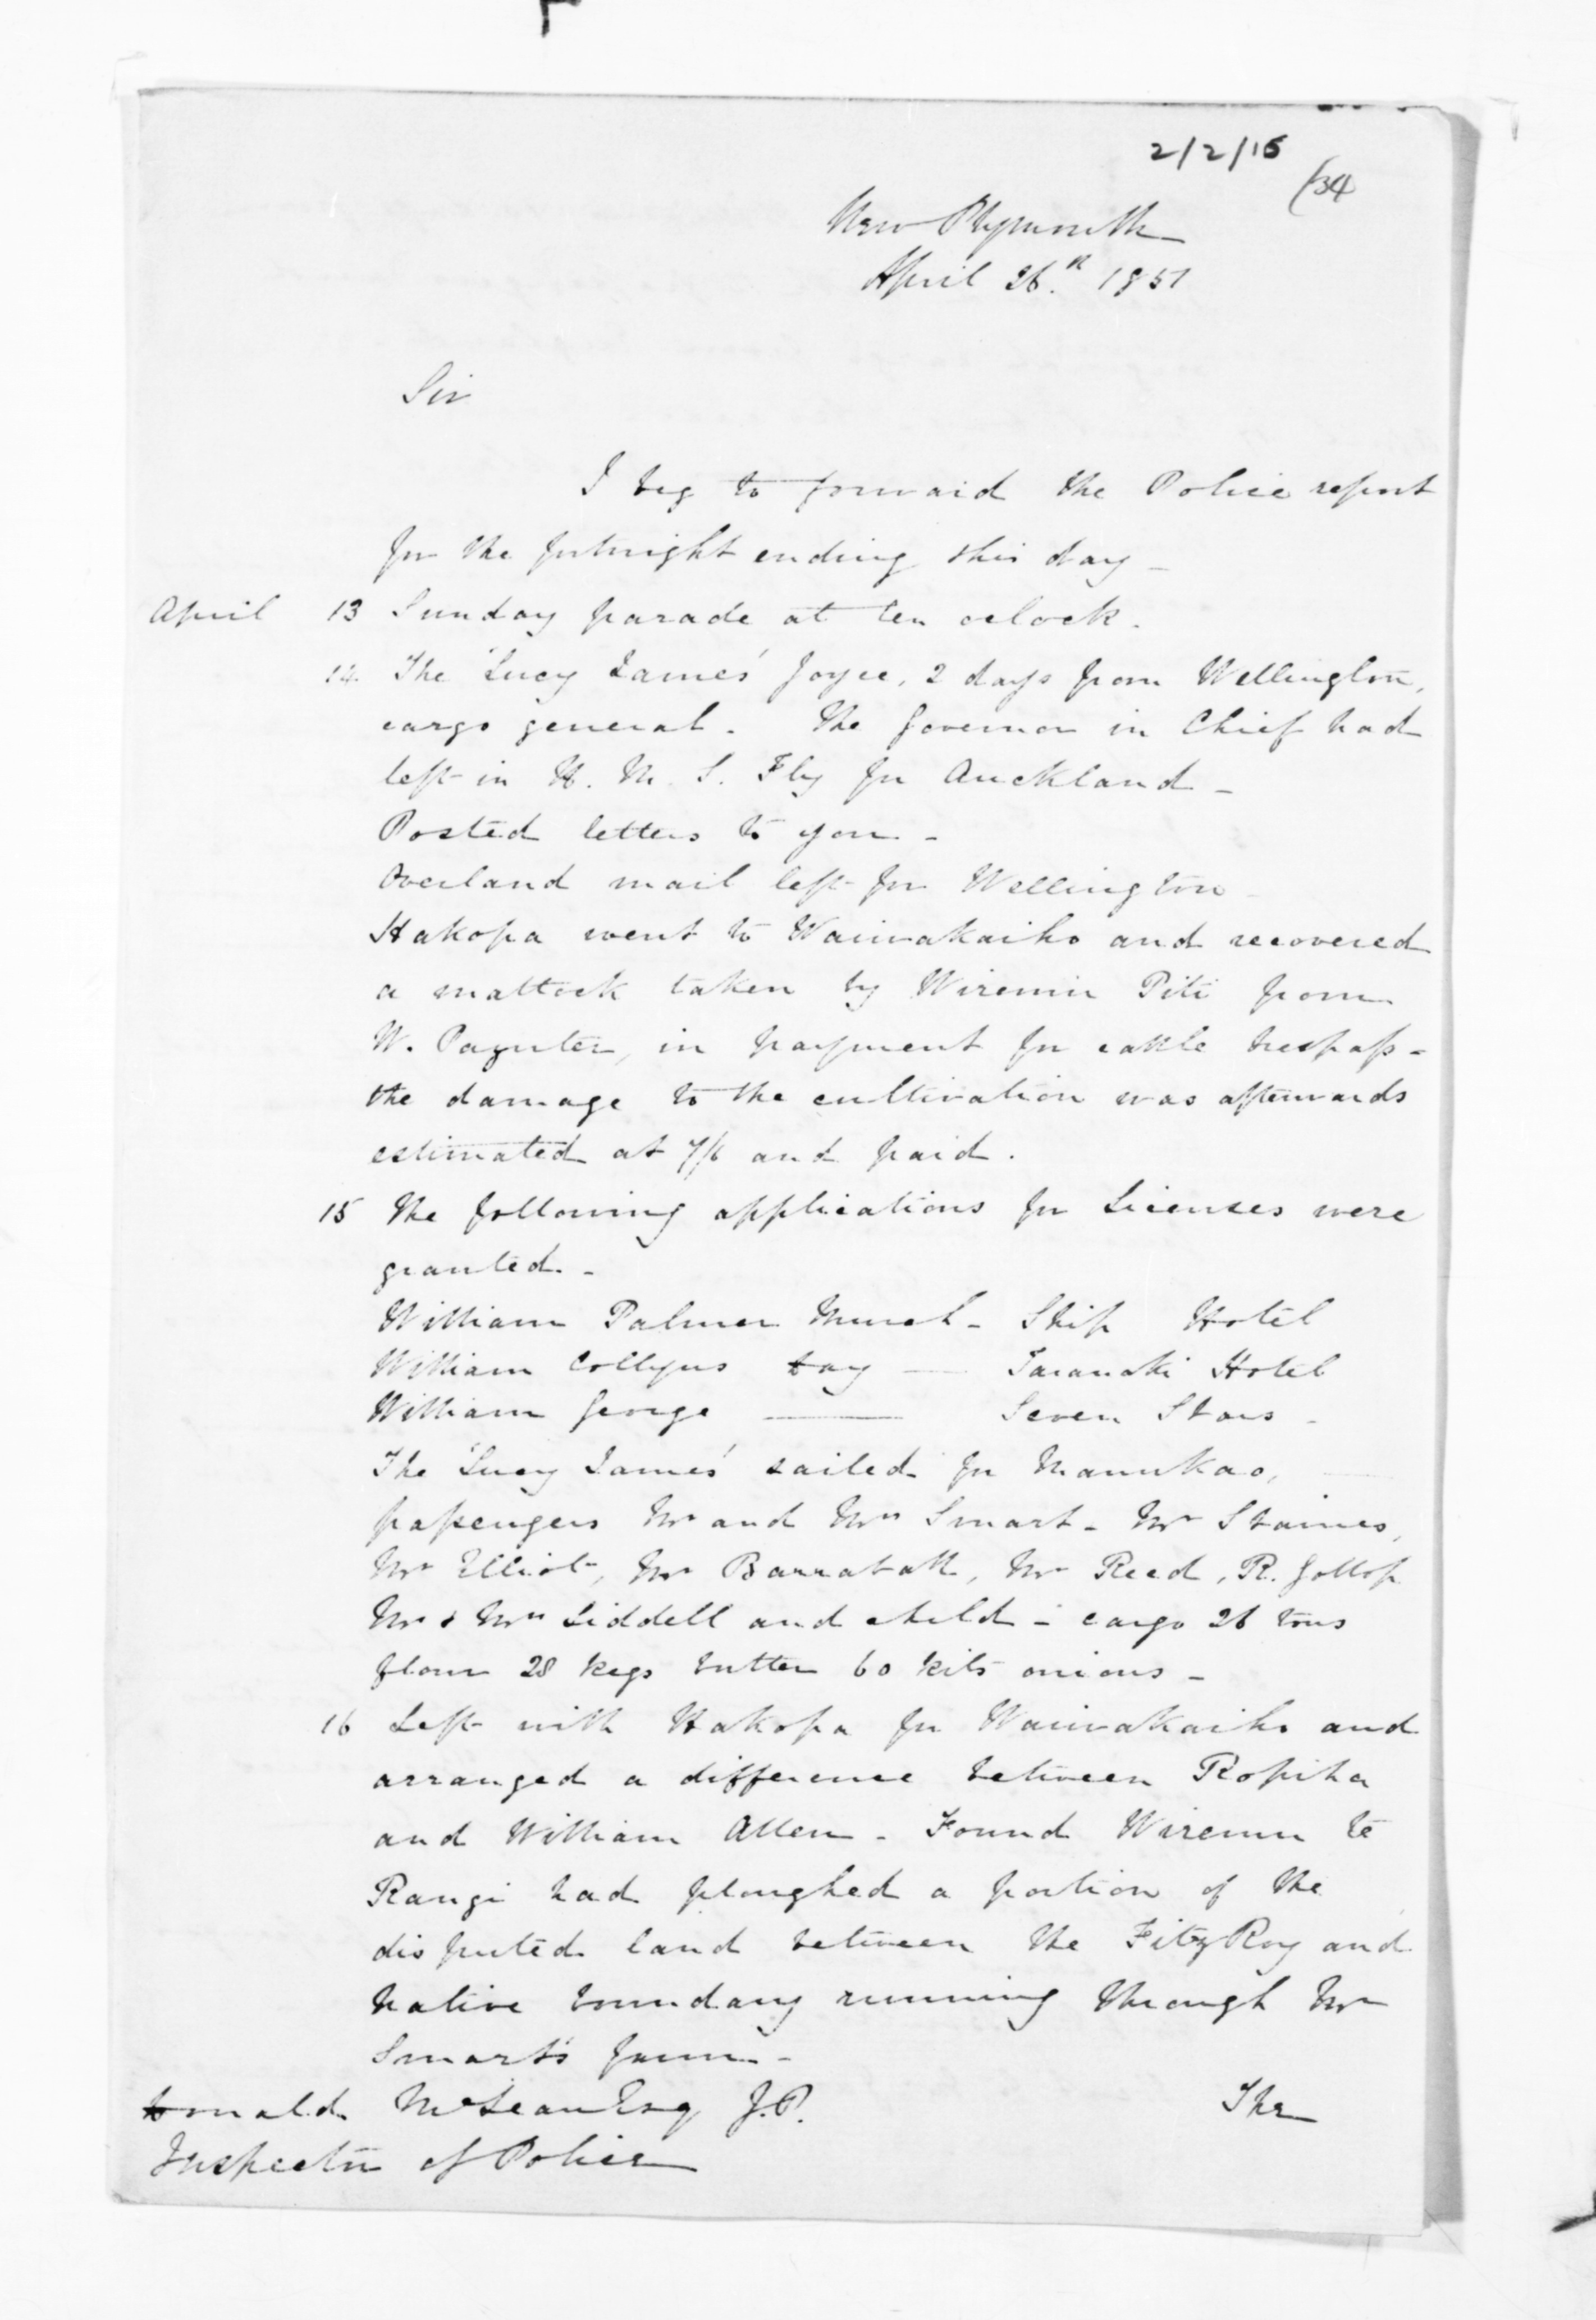 2/2/15
(34
New Plymouth
April 26.th 1851
Sir
I beg to forward the Police report
for the fortnight ending this day _
April 13 Sunday parade at ten oclock.
14. The 'Lucy James' Joyce, 2 days from Wellington,
cargo general. The Governor in Chief had
left in H. M. S. Fly for Auckland _
Posted letters to you. _
Overland mail left for Wellington _
Hakopa went to Waiwakaiho and recovered
a mattock taken by Wiremu Piti from
W. Paynter, in payment for cattle trespass -
the damage to the cultivation was afterwards
estimated at 7/6 and paid.
15 The following applications for Licenses were
granted. _
William Palmer Murch - Ship Hotel
William Collyns Day — Taranaki Hotel
William George —— Seven Stars _
The 'Lucy James' sailed for Manukao,
passengers Mr and Mrs Smart - Mr Staines,
Mr Elliot, Mr Barrabatt, Mr Reed, R. Gollop
Mr & Mrs Liddell and child - cargo 26 tons
flour 28 kegs butter 60 kits onions _
16 Left with Hakopa for Waiwakaiho and
arranged a difference between Ropiha
and William Allen - Found Wiremu te
Rangi had ploughed a portion of the
disputed land between the FitzRoy and
native boundary running through Mr
Smart's farm. -
Donald McLean Esq J.P.
Inspector of Police
The